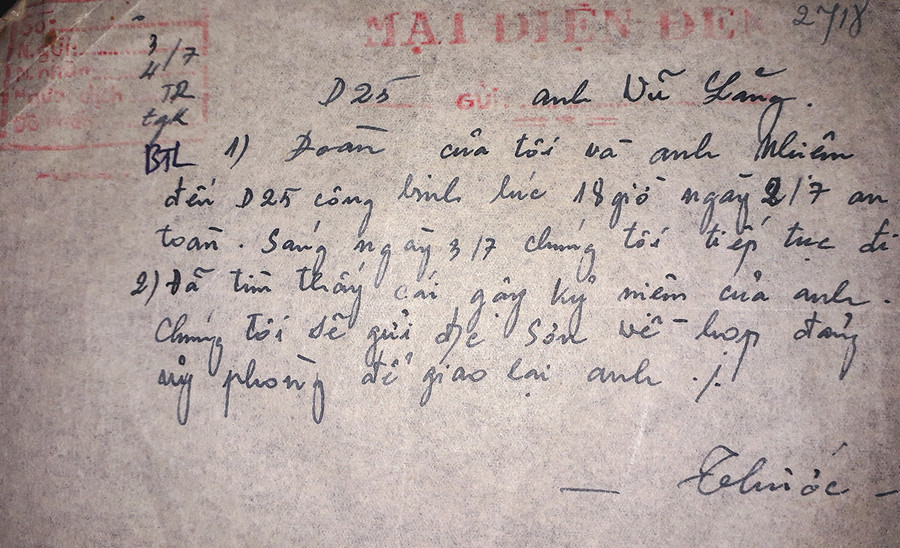 MẬT ĐIỆN ĐẾN
2718
3
4/7
TR
tgk
D25 anh Vũ Lăng.
BTL 1) Đoàn của tôi và anh Nhiêm
đến D25 công binh lúc 18 giờ ngày 2/7 an
toàn. Sáng ngày 3/7 chúng tôi tiếp tục đi
2) Đã tìm thấy cái gậy kỷ niệm của anh.
Chúng tôi sẽ gửi đ/c Sơn về họp đảng
ủy phòng để giao lại anh ./.
— Thước —